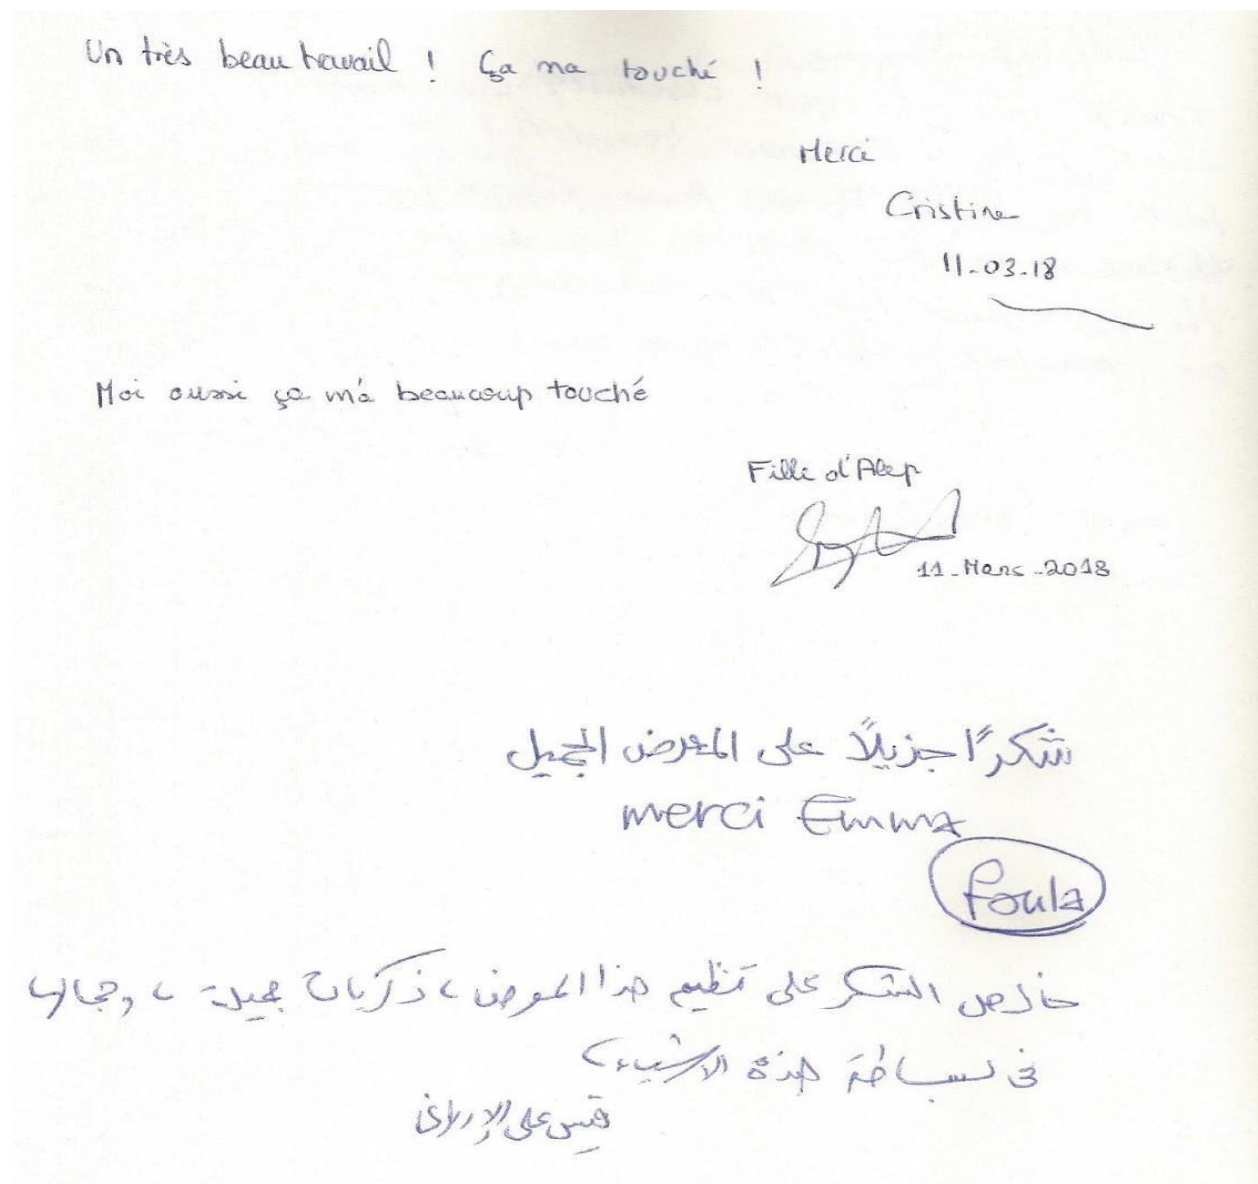 Un très beau travail ! Ça ma touché !
Merci
Cristine
11-03-18
Moi aussi ça m'a beaucoup touché
Fille d'Alep
11-Mars-2018
شكرًا جزيلًا على المعرض الجميل
merci Emma
Poula
خالص الشكر على تنظيم هذا المعرض، ذكريات جميلة، وجمالها
في بساطة هذه الأشياء،
قيس علي